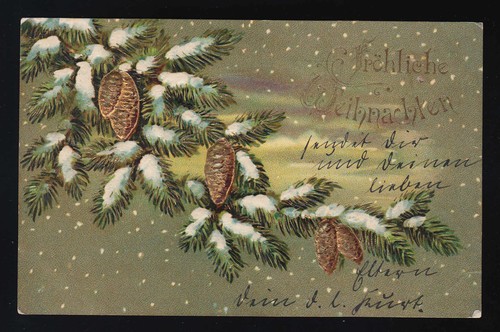 Fröhliche
Weihnachten
sendet Dir
und Deinen
lieben
Eltern
Dein d. l. Kurt.